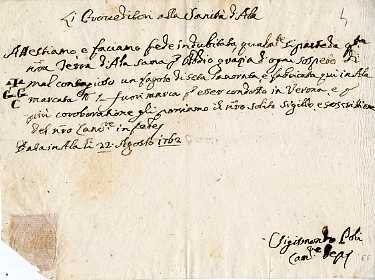 Li Proveditori alla Sanità d'Ala
Attestiamo e faciamo fede indubitata qualm.te si parte da q.ta
n̄ra Terra d'Ala sana p Iddio grazia d'ogni sospetto di
mal contagioso un fagoto di seta lavorata e fabricata qui in Ala
marcata n° 1 fuori marca p esser condotto in Verona e p
più coroboratione gli poniamo il n̄ro solito sigillo e soscritione
del nro Canc.re in fede
Data in Ala li 22 Agosto 1762
Sigismondo
Canc.re